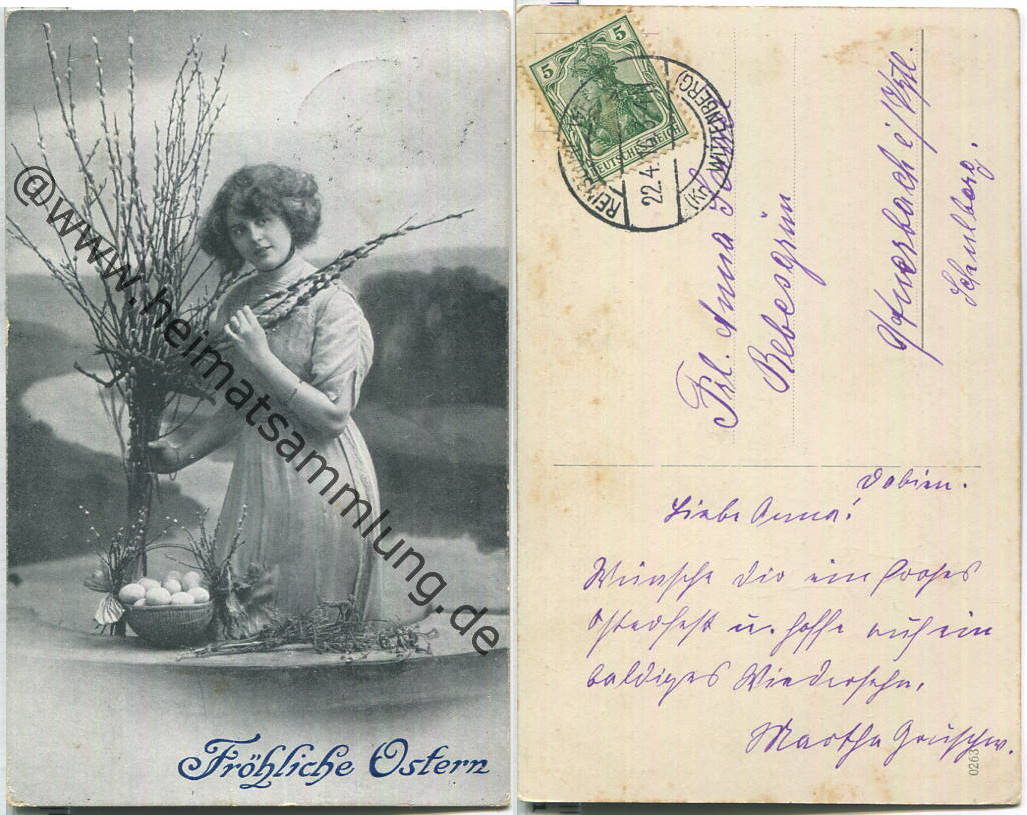 @www.heimatsammlung.de
Fröhliche Ostern
5 5
DEUTSCHES REICH
22.4.
(Kr. WITTENBERG)
Frl. Anna
Rebesgrün
Auerbach i/Vgtl.
Schulberg.
Dabien.
Liebe Anna!
Wünsche dir ein frohes
Osterfest u. hoffe auf ein
baldiges Wiedersehn.
Martha Gruschw.
0263